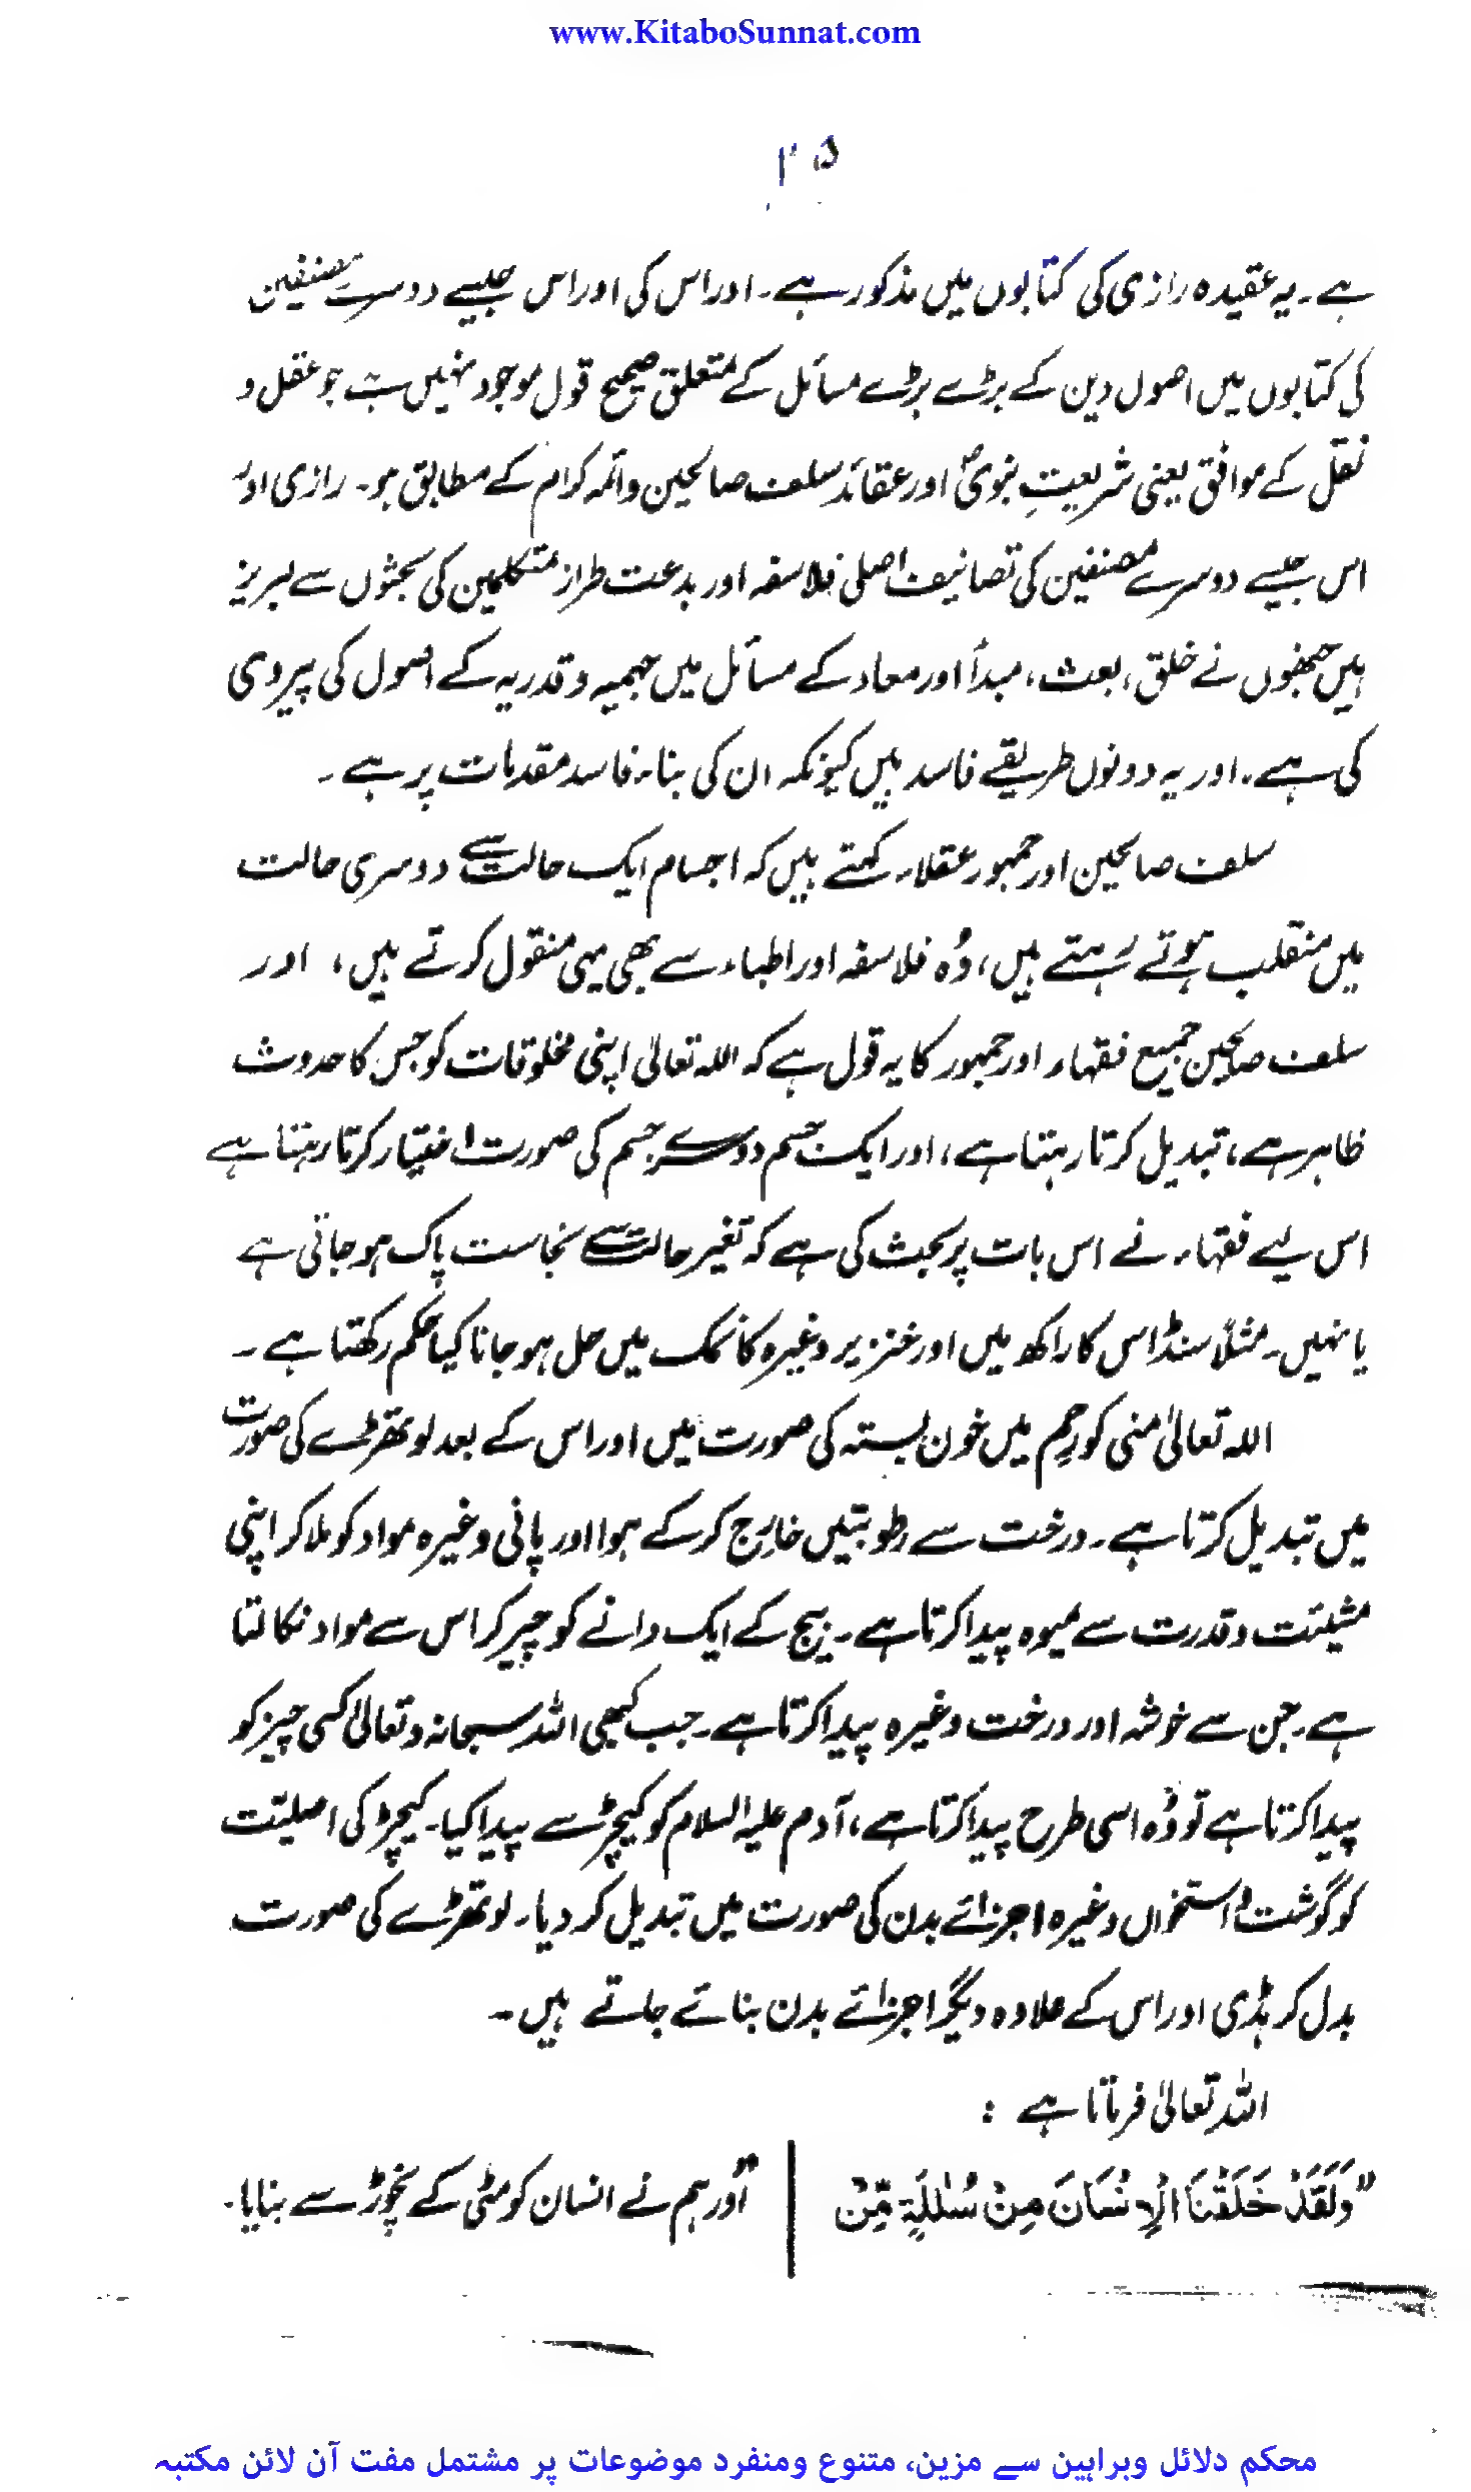 www.KitaboSunnat.com
۲۵
ہے۔ یہ عقیدہ رازی کی کتابوں میں مذکور ہے۔ اور اس کی اور اس جیسے دوسرے مصنفین
کی کتابوں میں اصول دین کے بڑے بڑے مسائل کے متعلق صحیح قول موجود نہیں ہے جو عقل و
نقل کے موافق یعنی شریعتِ نبویؐ اور عقائد سلف صالحین وائمہ کرام کے مطابق ہو۔ رازی اور
اس جیسے دوسرے مصنفین کی تصانیف اصلی فلاسفہ اور بدعت طراز متکلمین کی بحثوں سے لبریز
ہیں جنھوں نے خلق، بعث، مبدأ اور معاد کے مسائل میں جہمیہ و قدریہ کے اصول کی پیروی
کی ہے۔ اور یہ دونوں طریقے فاسد ہیں کیونکہ ان کی بناء فاسد مقدمات پر ہے۔
سلف صالحین اور جمہور عقلاء کہتے ہیں کہ اجسام ایک حالت سے دوسری حالت
میں منقلب ہوتے رہتے ہیں، وُہ فلاسفہ اور اطباء سے بھی یہی منقول کرتے ہیں، اور
سلف صالحین جمیع فقہاء اور جمہور کا یہ قول ہے کہ اللہ تعالیٰ اپنی مخلوقات کو جس کا حدوث
ظاہر ہے، تبدیل کرتا رہتا ہے، اور ایک جسم دوسرے جسم کی صورت اختیار کرتا رہتا ہے
اس لیے فقہاء نے اس بات پر بحث کی ہے کہ تغیر حالت سے نجاست پاک ہو جاتی ہے
یا نہیں۔ مثلاً سنڈاس کا راکھ میں اور خنزیر وغیرہ کا نمک میں حل ہو جانا کیا حکم رکھتا ہے۔
اللہ تعالیٰ منی کو رحِم میں خون بستہ کی صورت میں اور اس کے بعد لوتھڑے کی صورت
میں تبدیل کرتا ہے۔ درخت سے رطوبتیں خارج کر کے ہوا اور پانی وغیرہ مواد کو ملا کر اپنی
مشیئت و قدرت سے میوہ پیدا کرتا ہے۔ بیج کے ایک دانے کو چیر کر اس سے مواد نکالتا
ہے۔ جن سے خوشہ اور درخت وغیرہ پیدا کرتا ہے۔ جب کبھی اللہ سبحانہ وتعالیٰ کسی چیز کو
پیدا کرتا ہے تو وُہ اسی طرح پیدا کرتا ہے، آدم علیہ السلام کو کیچڑ سے پیدا کیا۔ کیچڑ کی اصلیّت
کو گوشت و استخواں وغیرہ اجزائے بدن کی صورت میں تبدیل کر دیا۔ لوتھڑے کی صورت
بدل کر ہڈی اور اس کے علاوہ دیگر اجزائے بدن بنائے جاتے ہیں۔
اللہ تعالیٰ فرماتا ہے :
"وَلَقَدْ خَلَقْنَا الْاِنْسَانَ مِنْ سُلٰلَةٍ مِّنْ
"اور ہم نے انسان کو مٹی کے نچوڑ سے بنایا۔
محکم دلائل وبراہین سے مزین، متنوع ومنفرد موضوعات پر مشتمل مفت آن لائن مکتبہ